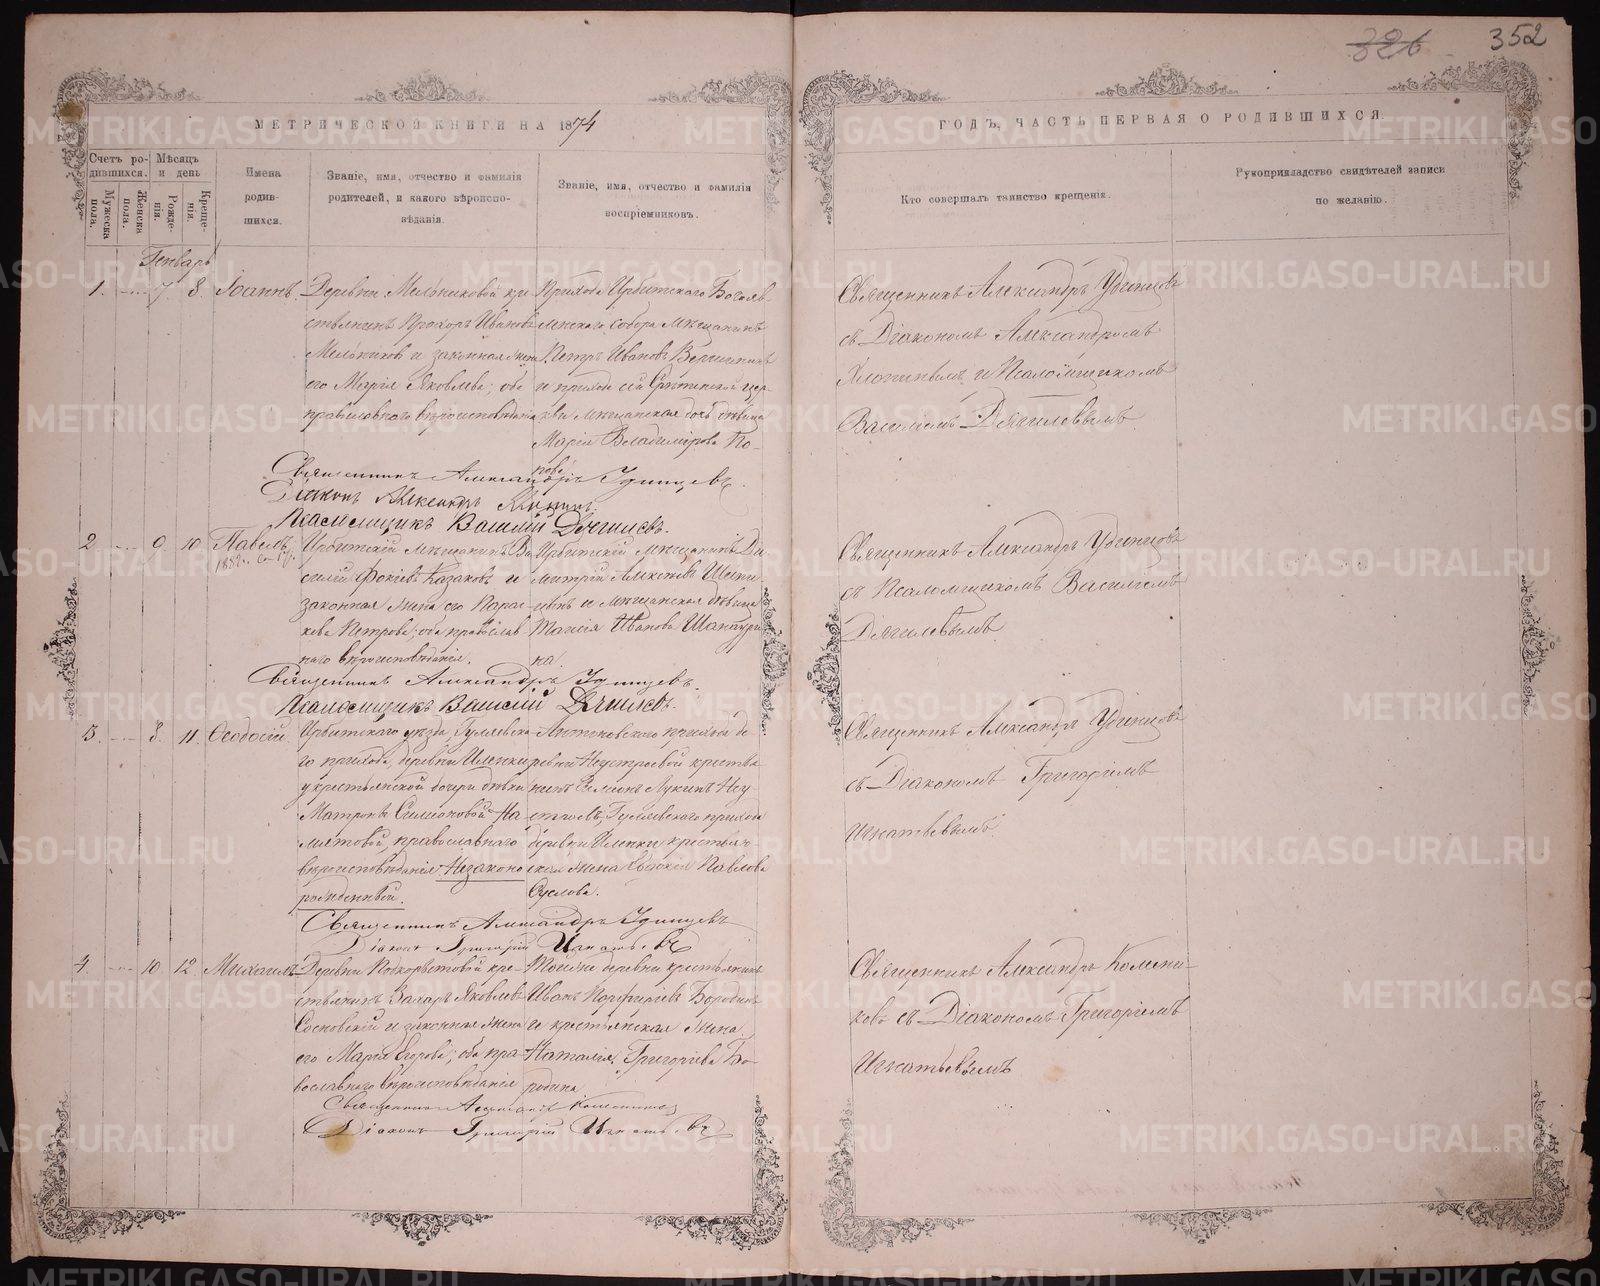 326 352
МЕТРИЧЕСКОЙ КНИГИ НА 1874
ГОДЪ, ЧАСТЬ ПЕРВАЯ О РОДИВШИХСЯ.
Счетъ родившихся.
Мужеска пола.
Женска пола.
Мѣсяцъ и день
Рожденія.
Крещенія.
Имена родившихся.
Званіе, имя, отчество и фамилія родителей, и какого вѣроисповѣданія.
Званіе, имя, отчество и фамилія воспріемниковъ.
Кто совершалъ таинство крещенія.
Рукоприкладство свидѣтелей записи по желанію.
Генварь
1. 7 8. Іоаннъ.
Деревни Мельниковой кре-
стьянинъ Прохоръ Ивановъ
Мельниковъ и законная жена
его Марія Яковлева; оба
православнаго вѣроисповѣданія
Прихода Ирбитскаго Богояв-
ленскаго собора мѣщанинъ
Петръ Ивановъ
и прихода сей Срѣтенской цер-
кви мѣщанская дочь дѣвица
Марія Владимірова По-
пова.
Священникъ Александръ Удинцевъ
съ Діакономъ Александромъ
и Псаломщикомъ
Василіемъ Дягилевымъ.
Священникъ Александръ Удинцевъ.
Діаконъ Александръ
Псаломщикъ Василій Дягилевъ.
2 9 10 Павелъ.
Ирбитскій мѣщанинъ Ва-
силій Фокіевъ Казаковъ и
законная жена его Парас-
кева Петрова; оба православ-
наго вѣроисповѣданія.
Ирбитскій мѣщанинъ Ди-
митрій Алексѣевъ
и мѣщанская дѣвица
Таисія Иванова Шанаури-
на.
Священникъ Александръ Удинцевъ
съ Псаломщикомъ Василіемъ
Дягилевымъ.
Священникъ Александръ Удинцевъ.
Псаломщикъ Василій Дягилевъ.
3. 8. 11. Ѳеодосій.
Ирбитскаго уѣзда, Гуляевска-
го прихода, деревни Иленки
у крестьянской дочери дѣвки
Матроны Симеоновой
православнаго
вѣроисповѣданія. Незаконно
рожденный.
Антоновскаго прихода де-
ревни Неустроевой крестья-
нинъ Семенъ Лукинъ Неу-
строевъ, Гуляевскаго прихода
деревни Иленки крестьян-
ская жена Евдокія Павлова
Суслова.
Священникъ Александръ Удинцевъ
съ Діакономъ Григоріемъ
Игнатьевымъ
Священникъ Александръ Удинцевъ
Діаконъ Григорій Игнатьевъ
4. 10. 12. Михаилъ.
Деревни кре-
стьянинъ Захаръ Яковлевъ
Сосновскій и законная жена
его Марія Егорова; оба пра-
вославнаго вѣроисповѣданія
Тойже деревни крестьянинъ
Иванъ Порфирьевъ Бородинъ
и крестьянская жена
Наталія Григорьева Бо-
родина.
Священникъ Александръ
съ Діакономъ Григоріемъ
Игнатьевымъ
Священникъ
Діаконъ Григорій Игнатьевъ
METRIKI.GASO-URAL.RU